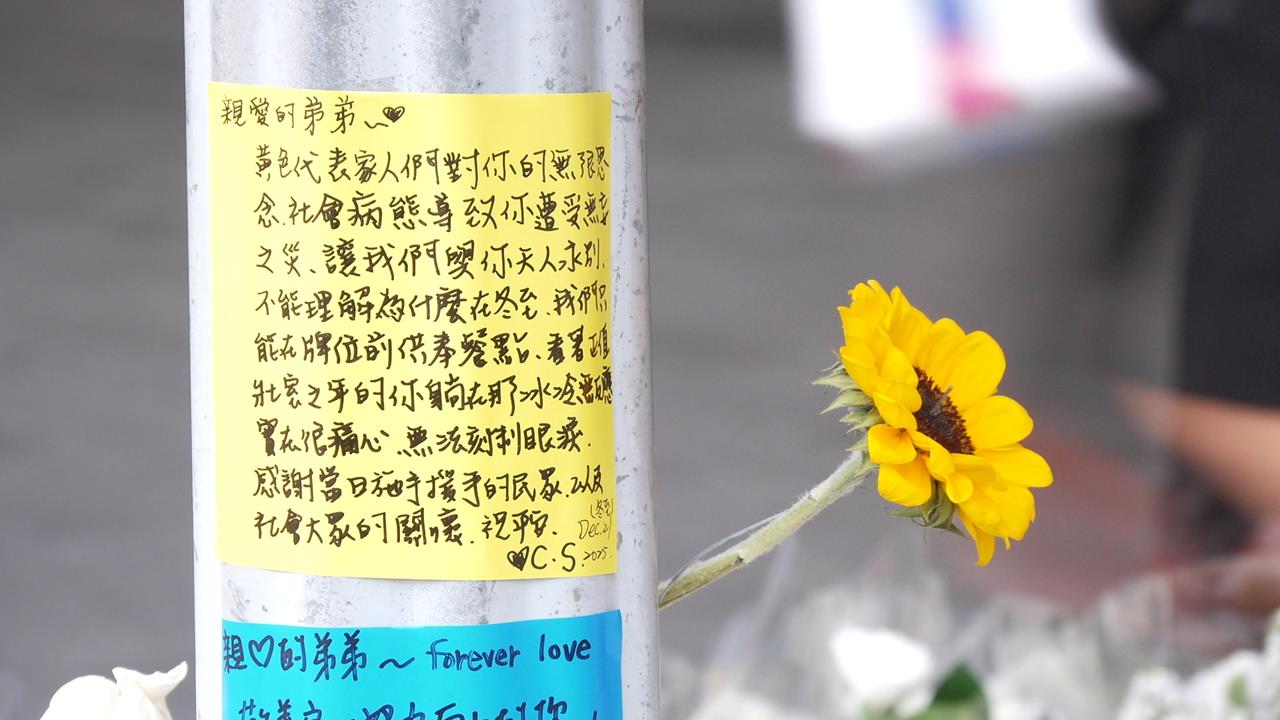 親愛的弟弟~♥
黃色代表家人們對你的無限思
念.社會病態導致你遭受無妄
之災、讓我們與你天人永別、
不能理解為什麼在冬至、我們只
能在牌位前供奉餐點、看著正值
壯家之年的你躺在那冰冷無回應
實在很痛心 無法刻制眼淚.
感謝當日施手援手的民眾.以及
社會大眾的關懷. 祝平安.
(冬至)
Dec.21
♥C.S.2025.
親♡的弟弟~forever love